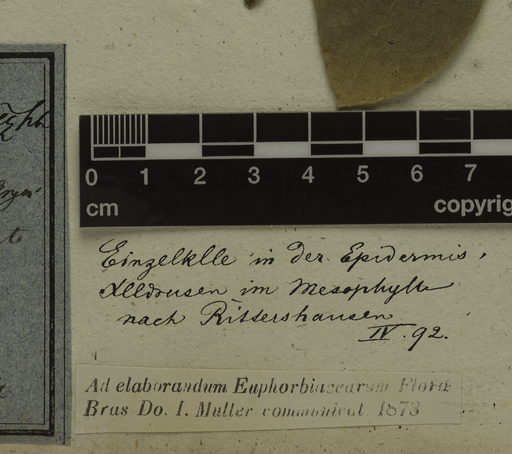 0 1 2 3 4 5 6 7
cm copyrig
Einzelklle in der Epidermis,
Klldrusen im Mesophylle
nach Rittershausen
IV. 92.
Ad elaborandum Euphorbiacearum Floræ
Bras Do. I. Muller communicat 1873